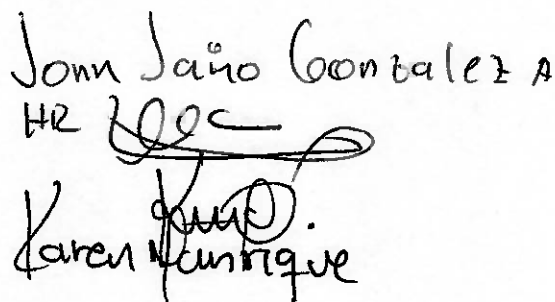 John Jairo Gonzalez A
HR
Karen Manrique